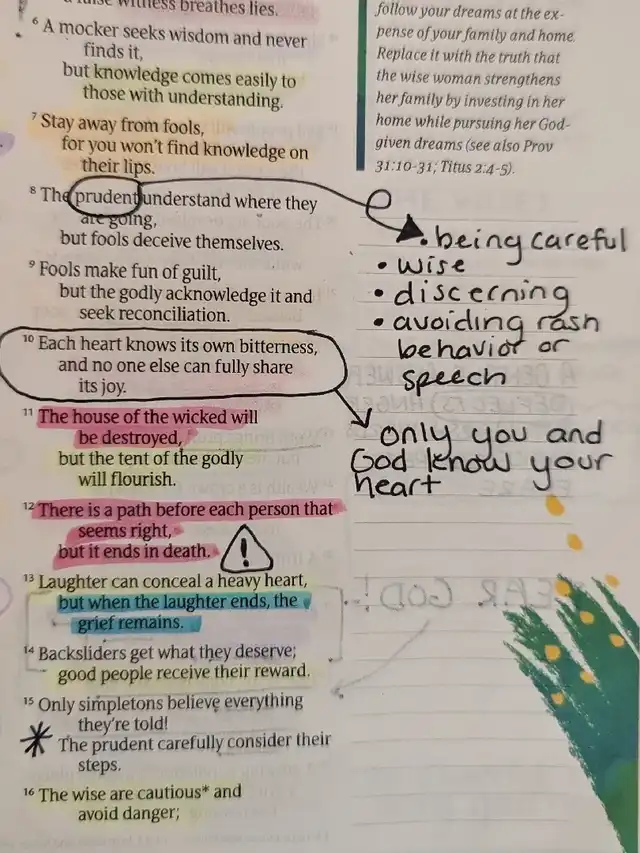 a false witness breathes lies.
6 A mocker seeks wisdom and never
finds it,
but knowledge comes easily to
those with understanding.
7 Stay away from fools,
for you won't find knowledge on
their lips.
8 The prudent understand where they
are going,
but fools deceive themselves.
9 Fools make fun of guilt,
but the godly acknowledge it and
seek reconciliation.
10 Each heart knows its own bitterness,
and no one else can fully share
its joy.
11 The house of the wicked will
be destroyed,
but the tent of the godly
will flourish.
12 There is a path before each person that
seems right,
but it ends in death.
!
13 Laughter can conceal a heavy heart,
but when the laughter ends, the
grief remains.
14 Backsliders get what they deserve;
good people receive their reward.
15 Only simpletons believe everything
they're told!
* The prudent carefully consider their
steps.
16 The wise are cautious* and
avoid danger;
follow your dreams at the ex-
pense of your family and home.
Replace it with the truth that
the wise woman strengthens
her family by investing in her
home while pursuing her God-
given dreams (see also Prov
31:10-31; Titus 2:4-5).
• being careful
• wise
• discerning
• avoiding rash
behavior or
speech
only you and
God know your
heart